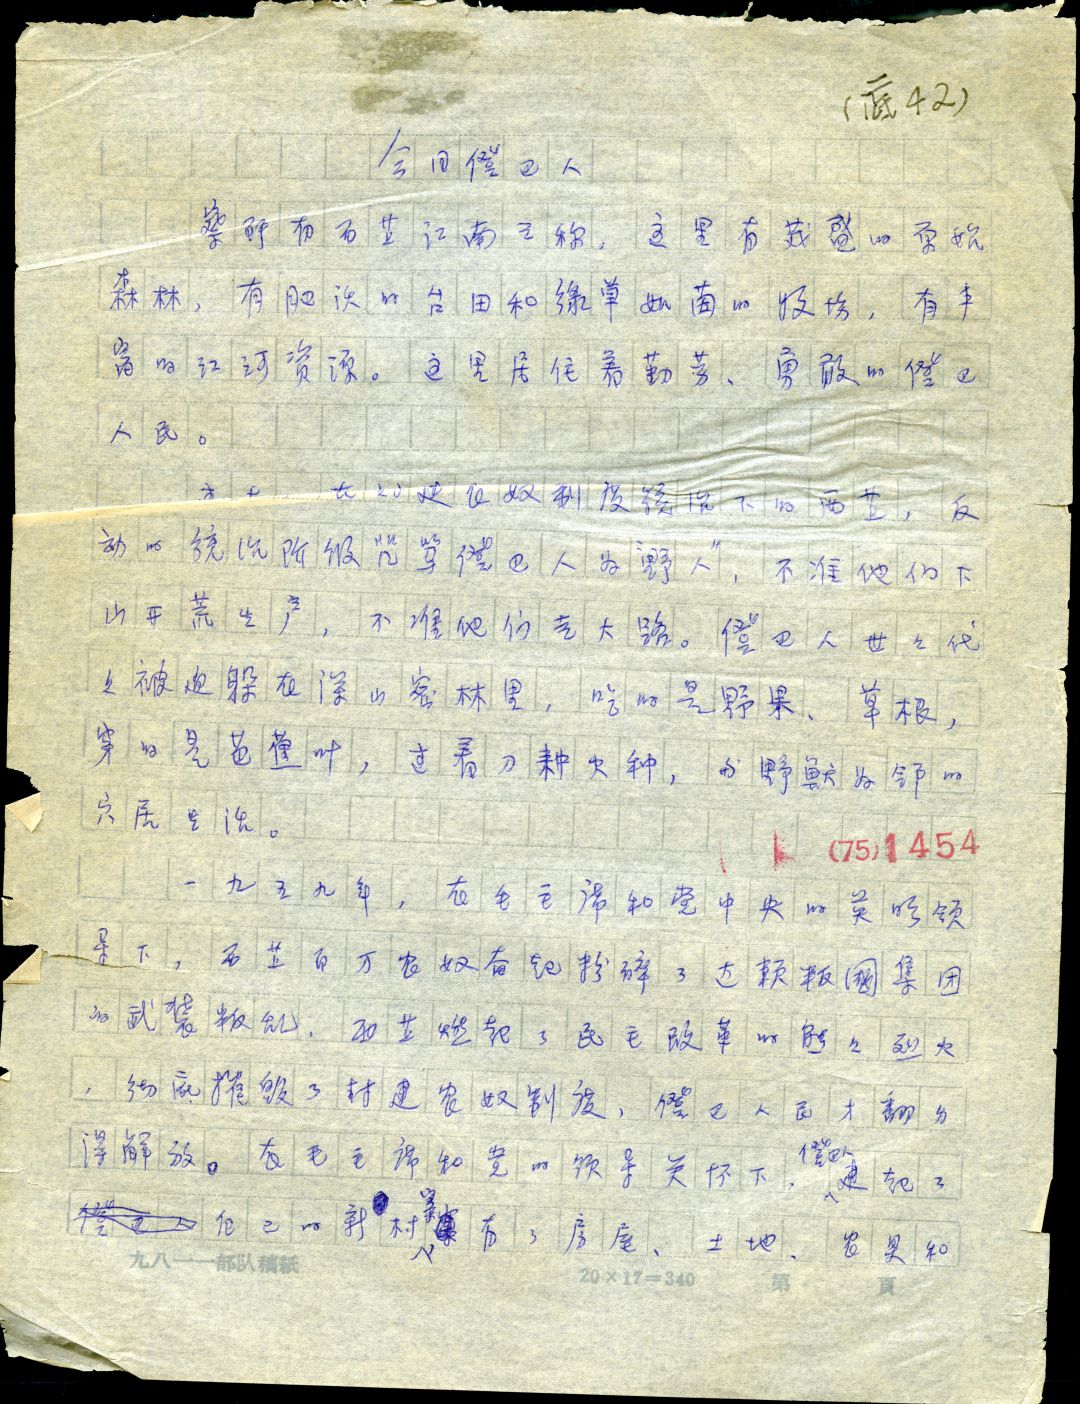 (底42)
今日僜巴人
察所有西芷江南之称，这里有茂盛的原始
森林，有肥沃的台田和绿草如茵的牧场，有丰
富的江河资源。这里居住着勤劳、勇敢的僜巴
人民。
奴制度统治下的西芷，反
动的统治阶级咒笃僜巴人为“野人”，不准他们下
山开荒生产，不准他们走大路。僜巴人世々代
々被迫躲在深山密林里，吃的是野果、草根，
穿的是芭蕉叶，过着刀耕火种，与野獸为邻的
穴居生活。
(75)1454
一九五九年，在毛主席和党中央的英明领
导下，西芷百万农奴奋起粉碎了达赖叛國集团
的武装叛乱，西芷燃起了民主改革的熊々烈火
，彻底摧毁了封建农奴制度，僜巴人民才翻身
得解放。在毛主席和党的领导关怀下，僜巴人建起了
自己的新村寨有了房屋、土地、农具和
九八一一部队稿紙
20×17=340
第 頁